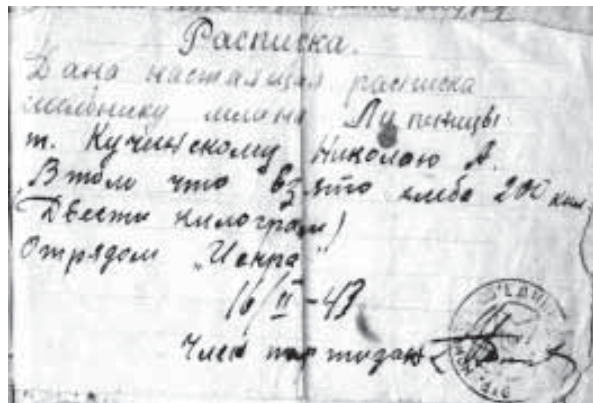 Расписка.
Дана настаящая расписка
мельнику млина Лупиницы
т. Кучинскому Николаю А.
В том что взято хлеба 200 кил.
(Двести килограм)
Отрядом "Искра"
16/II-43
Член